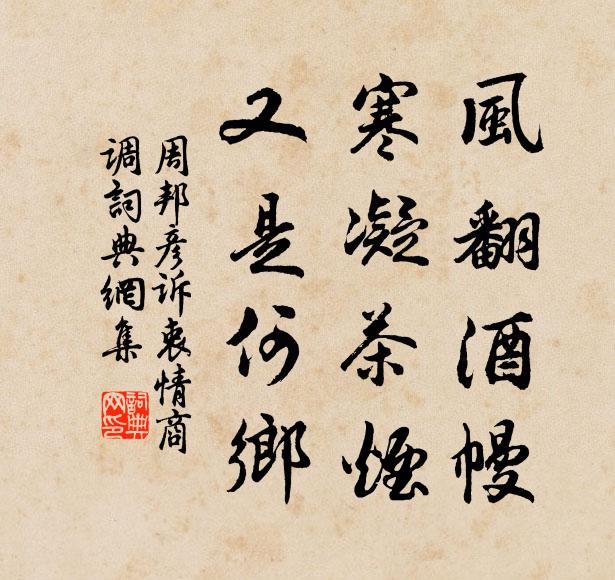 風翻酒幔
寒凝茶煙
又是何鄉
周邦彦诉衷情商
调詞典網集
詞典网印